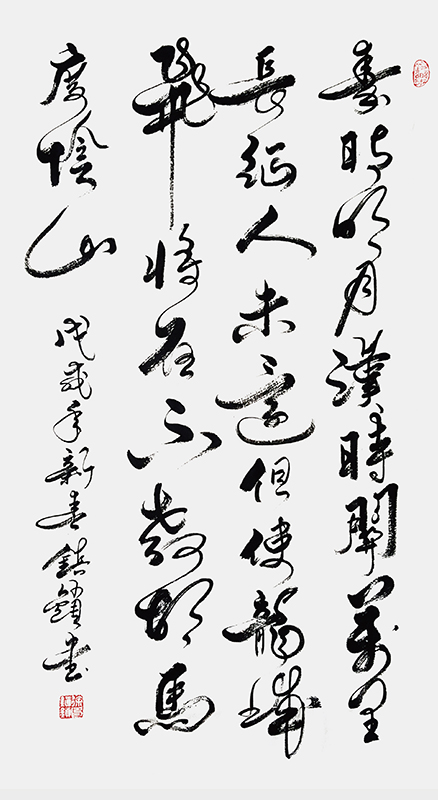 秦時明月漢時關萬里
長征人未還但使龍城
飛將在不教胡馬
度陰山
戊戌年新春書